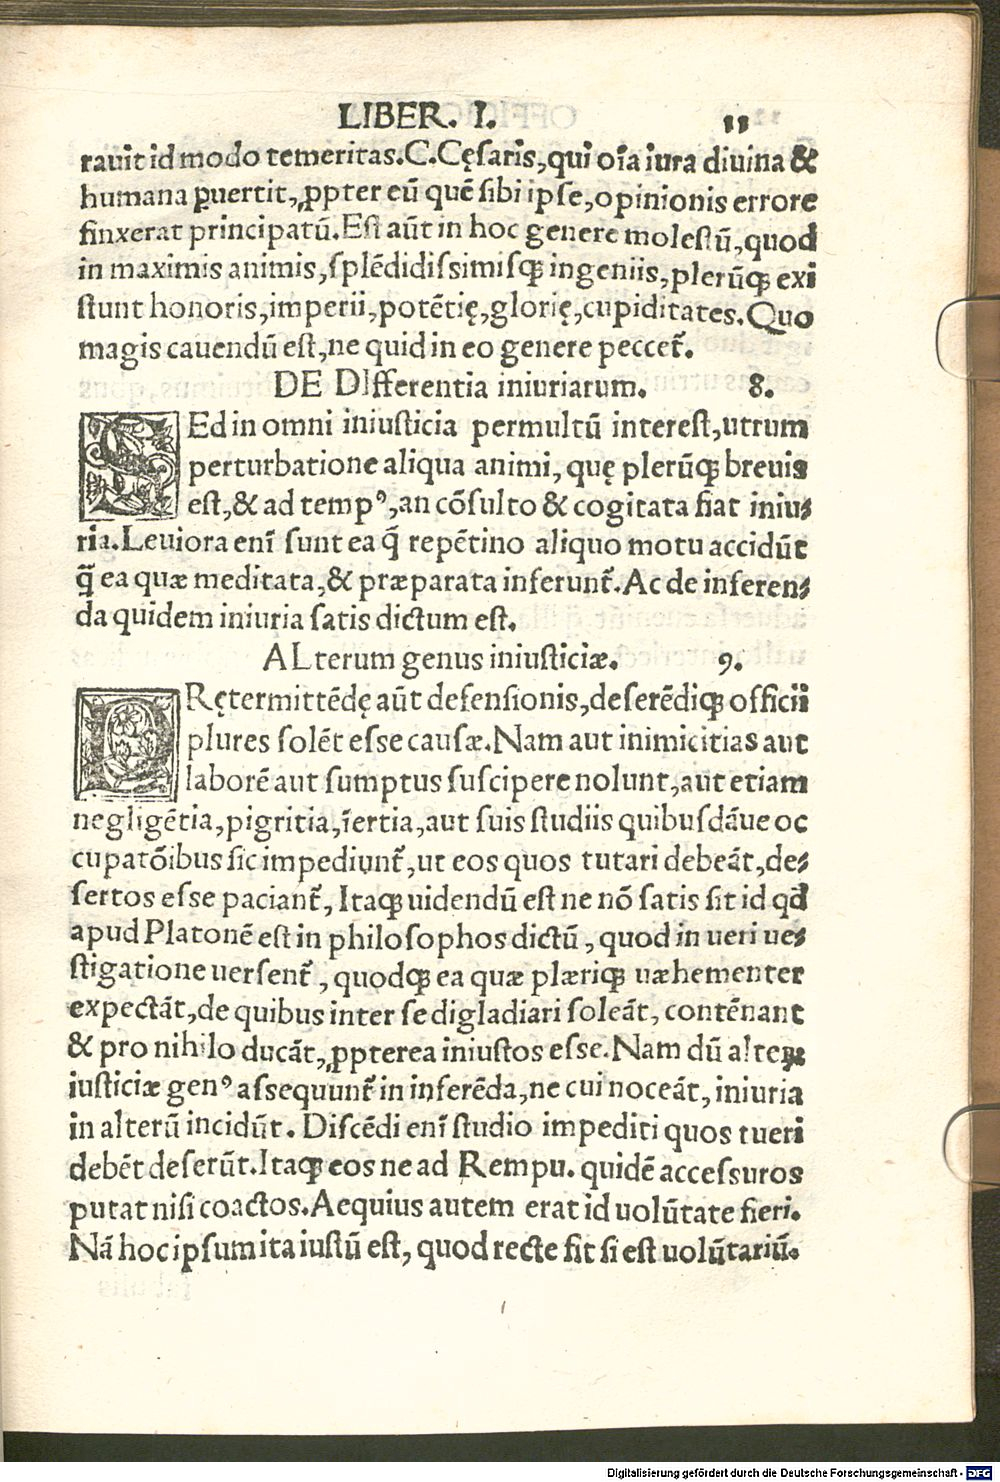 LIBER. I. 11
rauit id modo temeritas.C.Cęſaris,qui oı̃a iura diuina &
humana ꝑuertit,ꝓpter eũ quẽ ſibi ipſe,opinionis errore
finxerat principatũ.Eſt aũt in hoc genere moleſtũ,quod
in maximis animis,ſplẽdidiſsimiſqꝫ ingeniis,plerũqꝫ exi
ſtunt honoris,imperii,potẽtię,glorię,cupiditates.Quo
magis cauendũ eſt,ne quid in eo genere peccet᷑.
DE DIfferentia iniuriarum. 8.
SEd in omni iniuſticia permultũ intereſt,utrum
perturbatione aliqua animi,quę plerũqꝫ breuis
eſt,& ad tempꝰ,an cõſulto & cogitata fiat iniu⸗
ria.Leuiora enı̃ ſunt ea q̃ repẽtino aliquo motu accidũt
q̃ ea quæ meditata,& præparata inferunt᷑.Ac de inferen⸗
da quidem iniuria ſatis dictum eſt.
ALterum genus iniuſticiæ. 9.
PRętermittẽdę aũt defenſionis,deſerẽdiqꝫ officii
plures ſolẽt eſſe cauſæ.Nam aut inimicitias aut
laborẽ aut ſumptus ſuſcipere nolunt,aut etiam
negligẽtia,pigritia,ı̃ertia,aut ſuis ſtudiis quibuſdãue oc
cupatõibus ſic impediunt᷑,ut eos quos tutari debeãt,de⸗
ſertos eſſe paciant᷑, Itaqꝫ uidendũ eſt ne nõ ſatis ſit id qđ
apud Platonẽ eſt in philoſophos dictũ,quod in ueri ue⸗
ſtigatione uerſent᷑, quodqꝫ ea quæ plæriqꝫ uæhementer
expectãt,de quibus inter ſe digladiari ſoleãt, contẽnant
& pro nihilo ducãt,ꝓpterea iniuſtos eſſe.Nam dũ alteꝝ
iuſticiæ genꝰ aſſequunt᷑ in inferẽda,ne cui noceãt, iniuria
in alterũ incidũt. Diſcẽdi enı̃ ſtudio impediti quos tueri
debẽt deſerũt.Itaqꝫ eos ne ad Rempu. quidẽ acceſſuros
putat niſi coactos.Aequius autem erat id uolũtate fieri.
Nã hoc ipſum ita iuſtũ eſt, quod recte fit ſi eſt uolũtariũ.
Digitalisierung gefördert durch die Deutsche Forschungsgemeinschaft - DFG